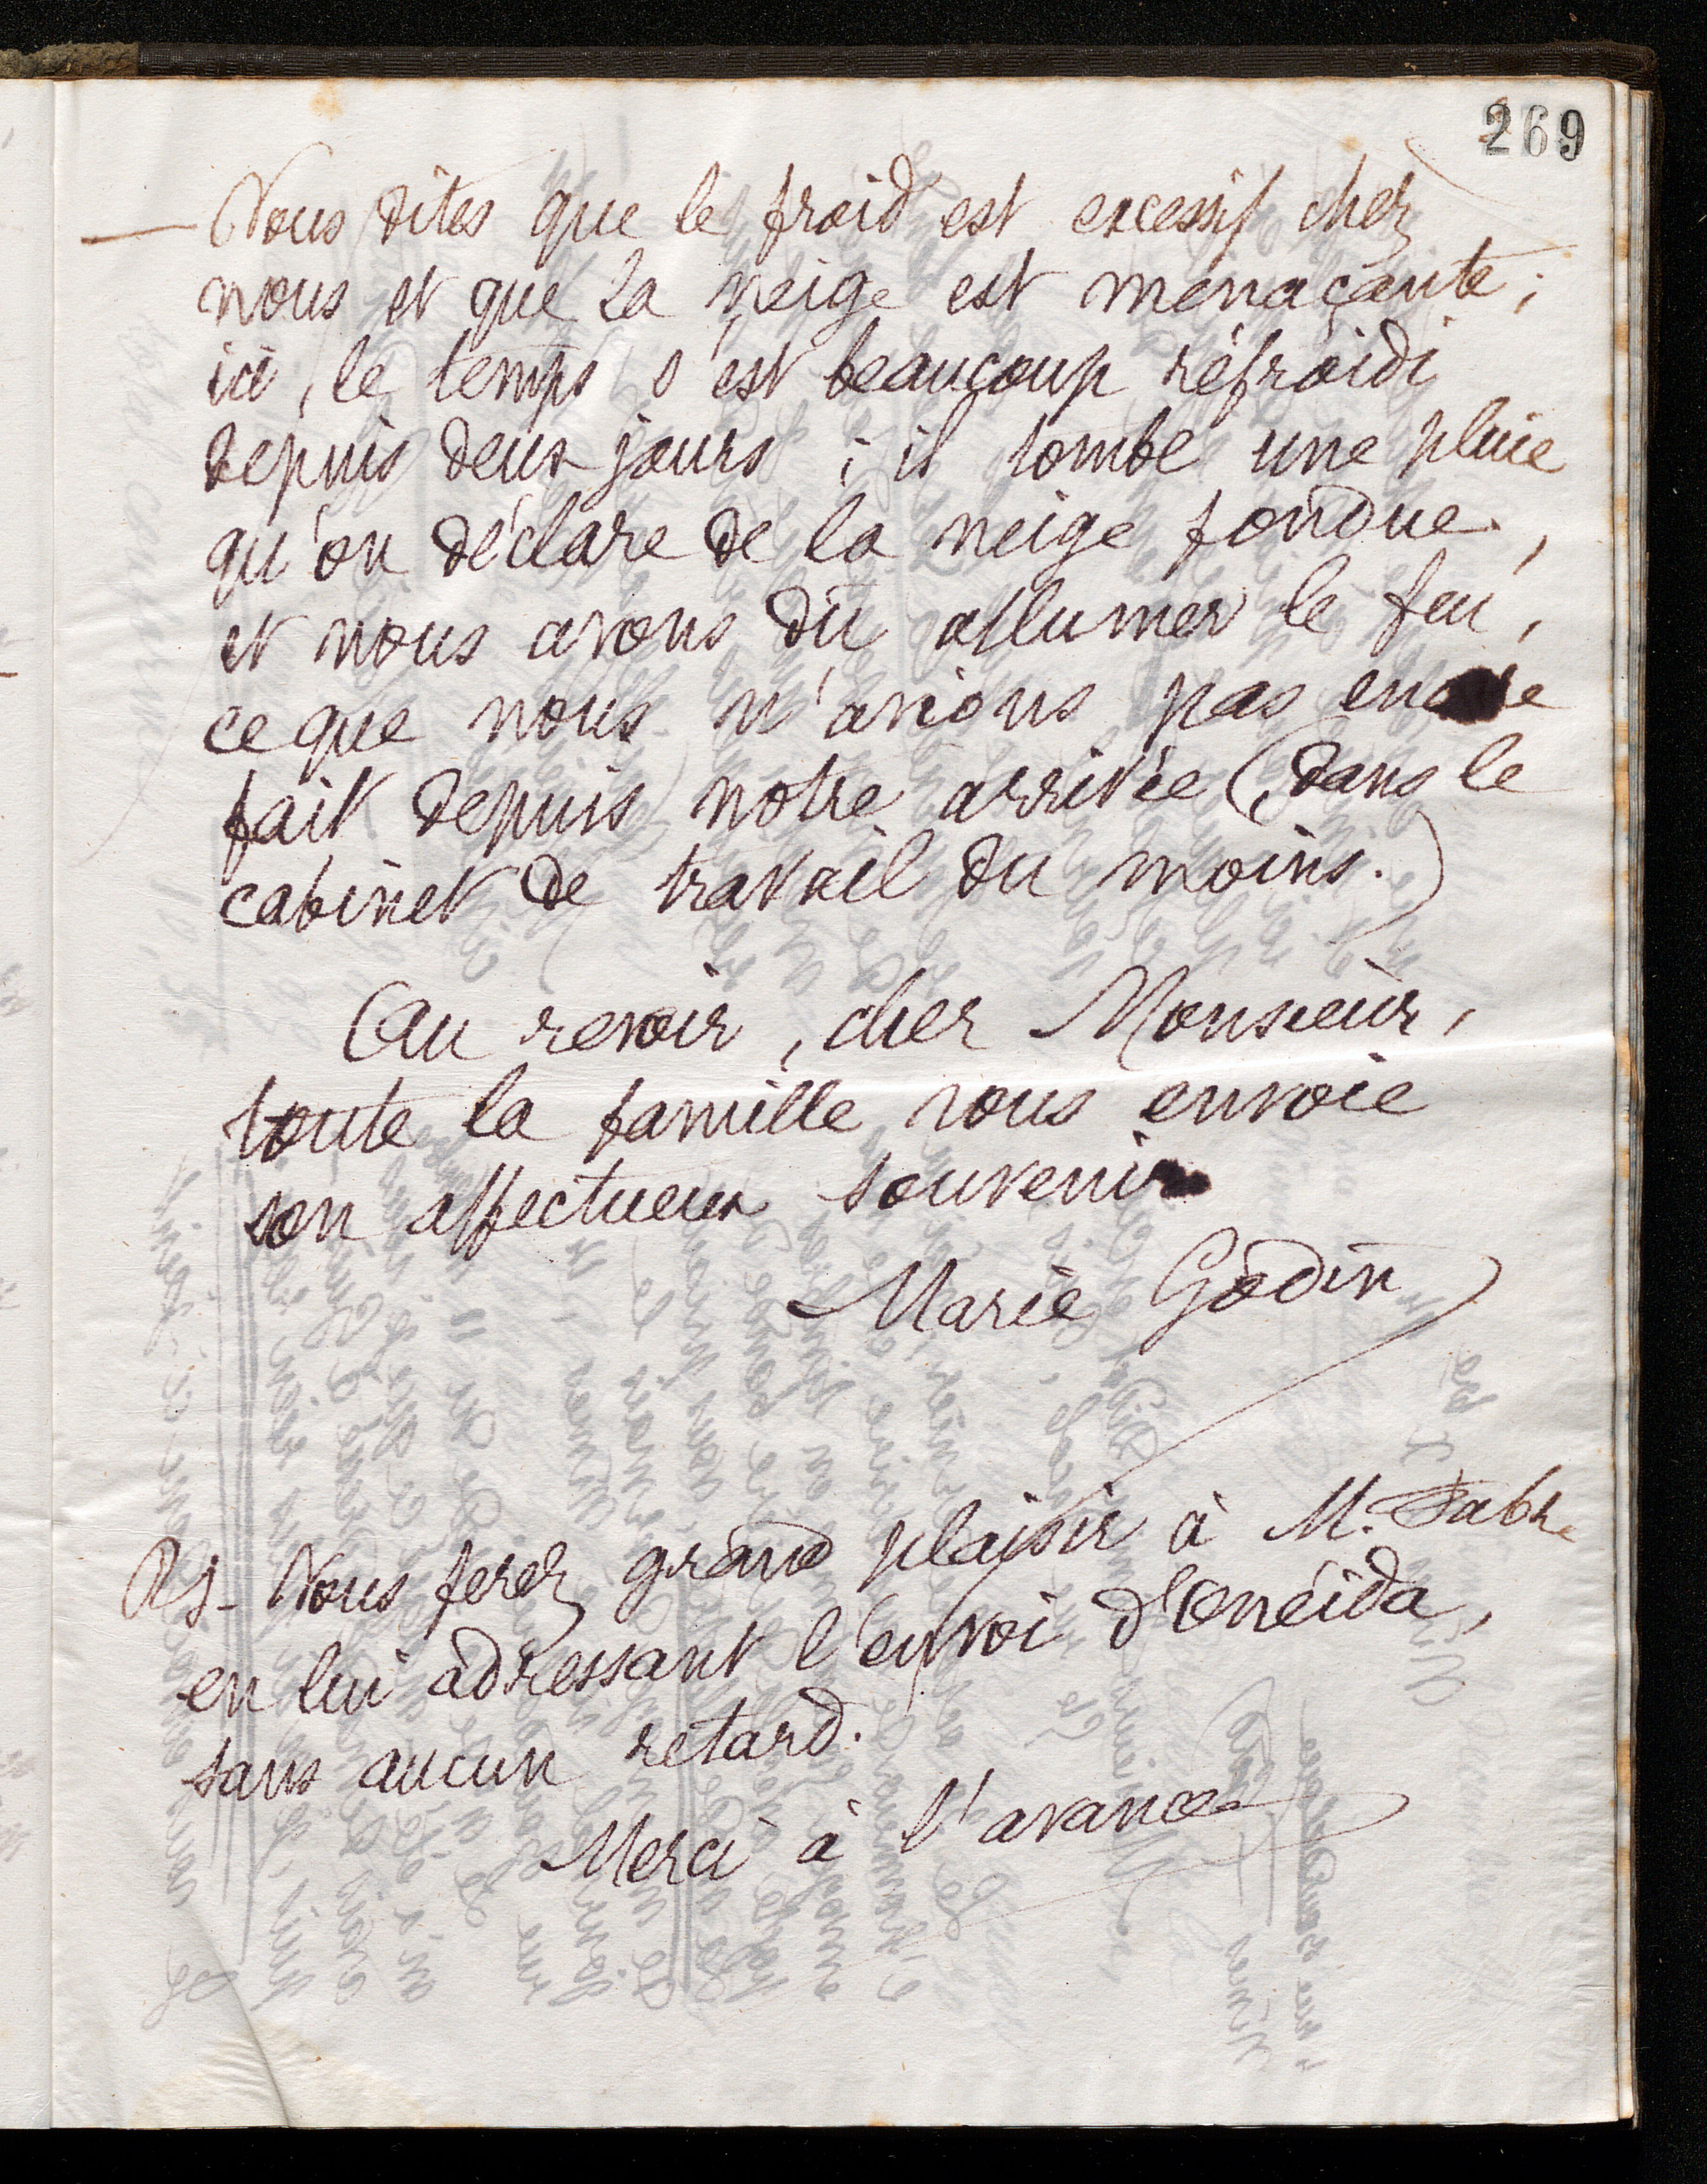 269
— Vous dites que le froid est excessif chez
vous et que la neige est menaçante ;
ici, le temps s'est beaucoup refroidi
depuis deux jours ; il tombe une pluie
qu'on déclare de la neige fondue,
et nous avons dû allumer le feu,
ce que nous n'avions pas encore
fait depuis notre arrivée (dans le
cabinet de travail du moins.)
Au revoir, cher Monsieur,
toute la famille vous envoie
son affectueux souvenir
Marie Godin
Ps- Vous ferez grand plaisir à M. Fabre
en lui adressant l'envoi d'Oneida,
sans aucun retard.
Merci à l'avance